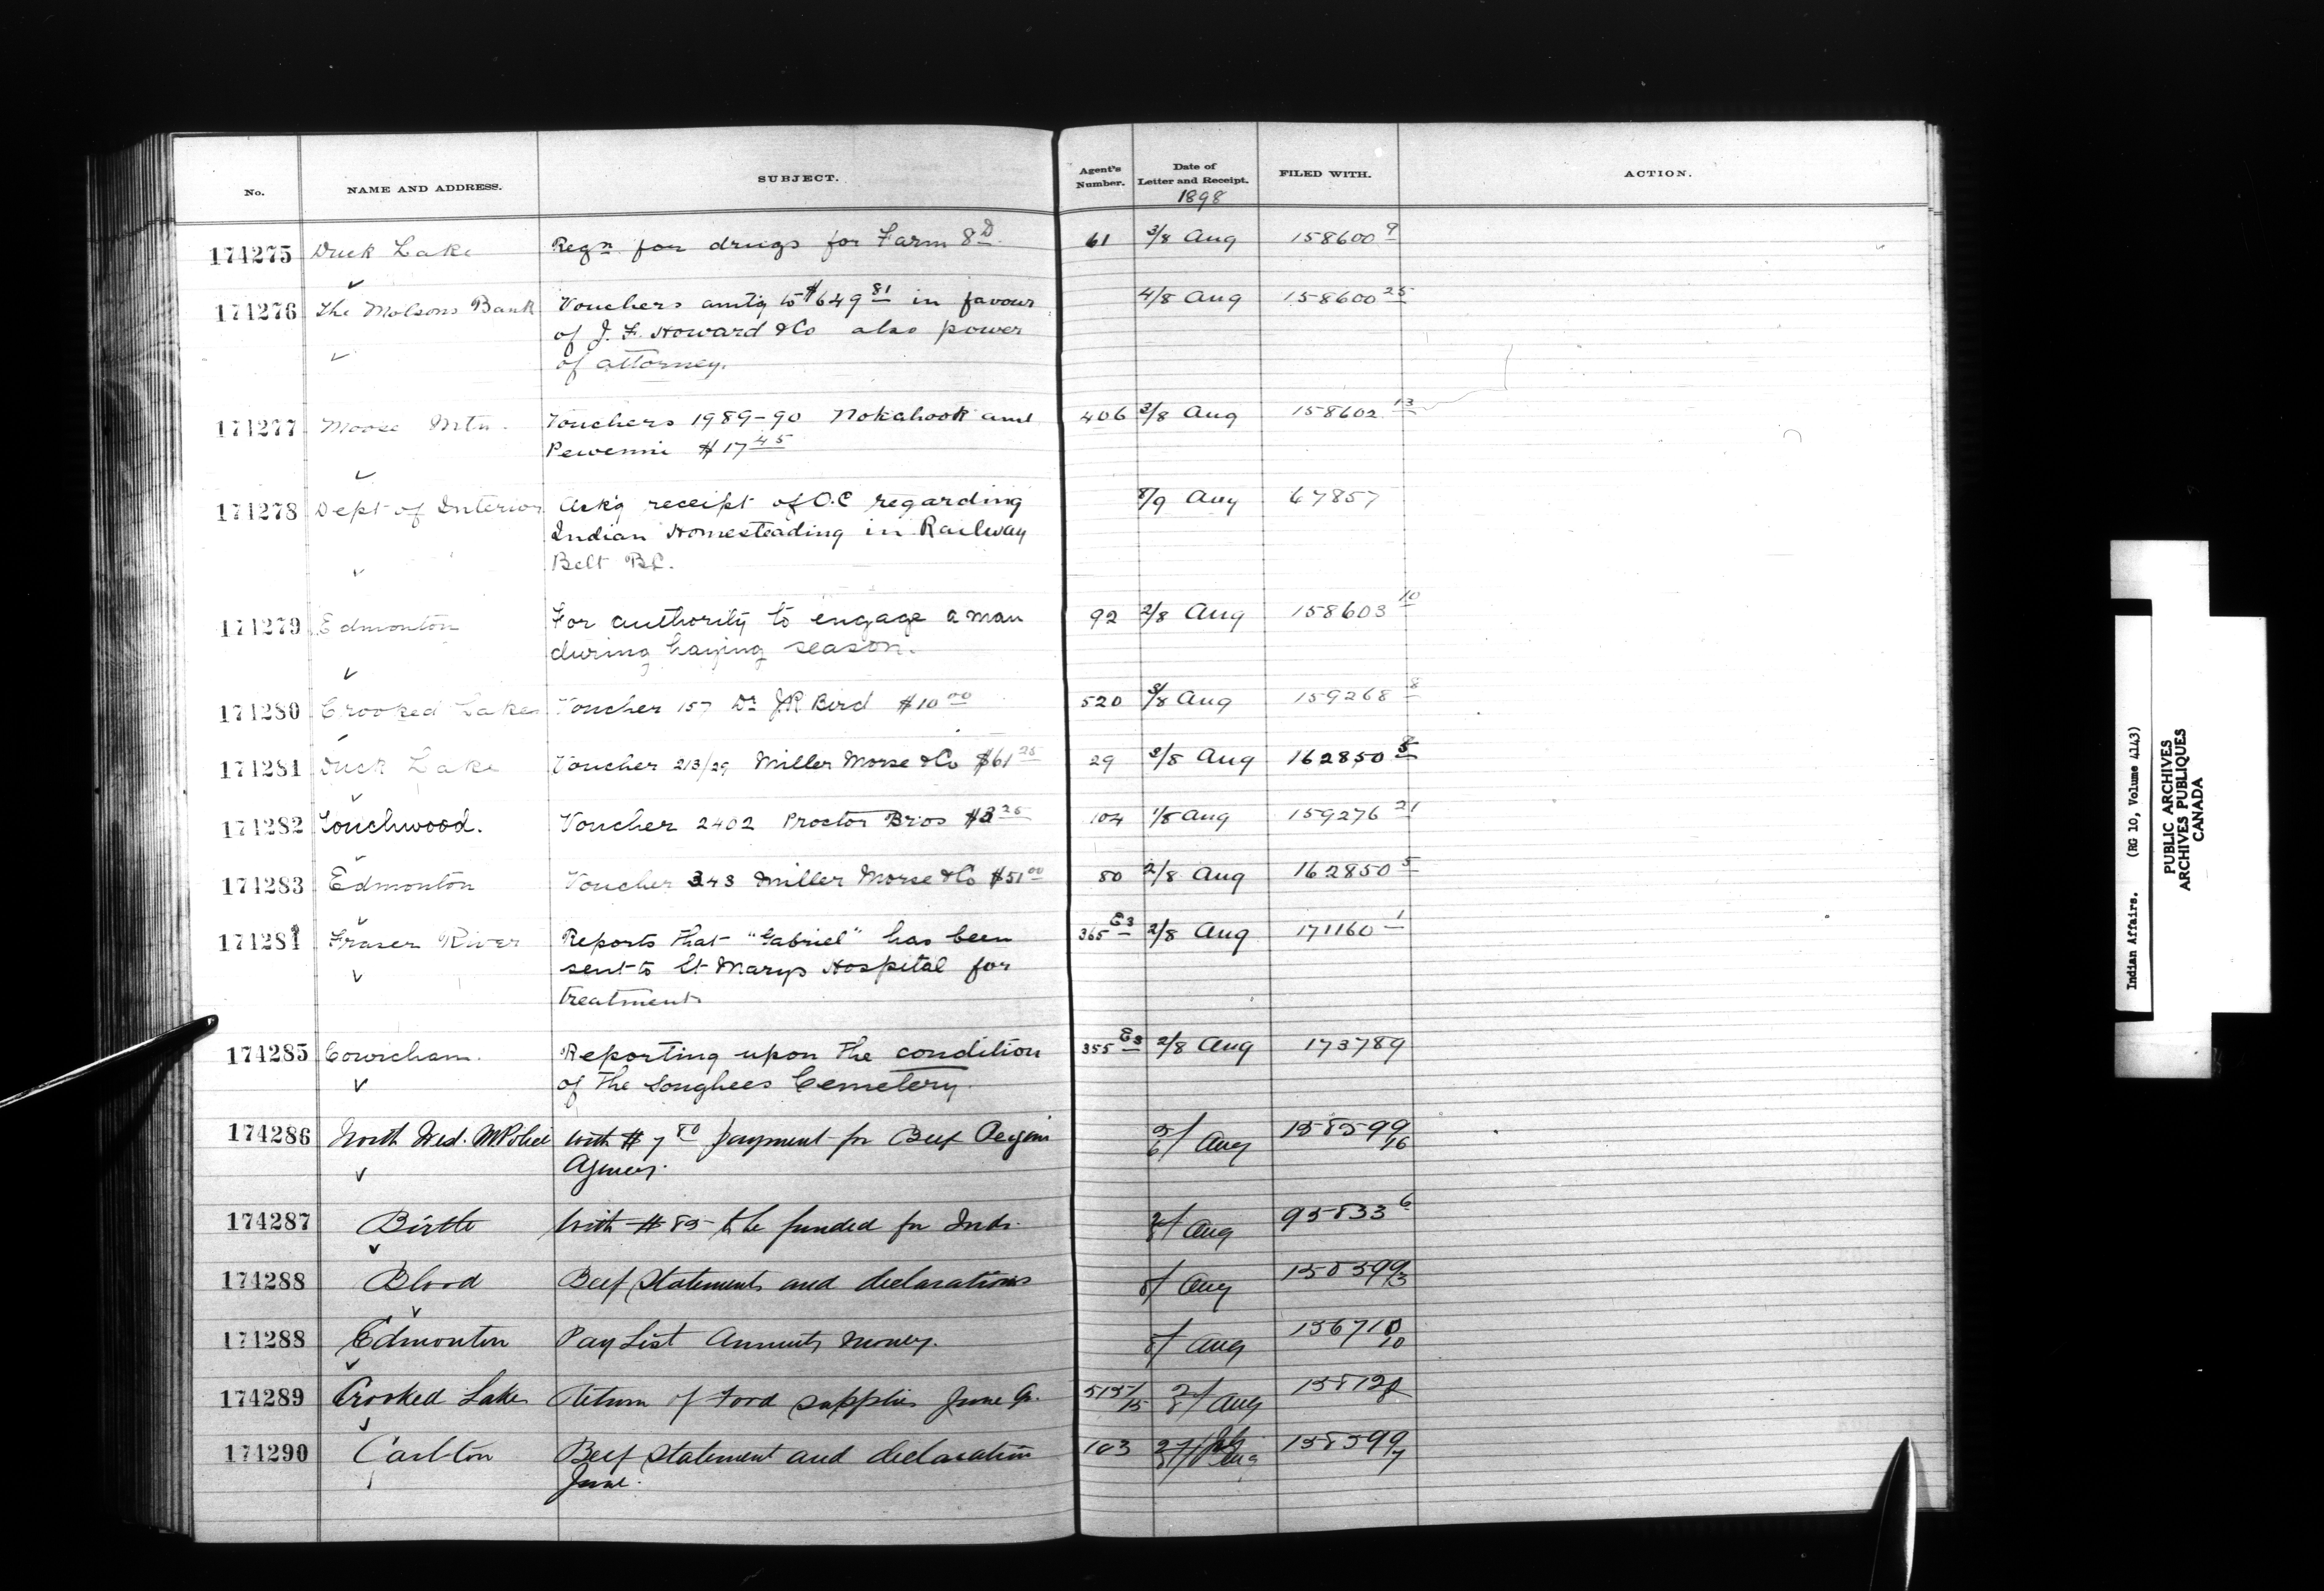 No. NAME AND ADDRESS. SUBJECT. Agent's Number. Date of Letter and Receipt. FILED WITH. ACTION.
1898
174275 Duck Lake Reqn for drugs for Farm 8D. 61 3/8 Aug 158600 9
174276 The Molsons Bank Vouchers amtg to $649 81 in favour 4/8 Aug 158600 25
of J. F. Howard & Co also power
of attorney.
174277 Moose Mtn. Vouchers 1989-90 Nokahook and 406 2/8 Aug 158602 13
Pewenni $17 45
174278 Dept of Interior Ack'g receipt of O.C regarding 8/9 Aug 67857
Indian Homesteading in Railway
Belt BC.
174279 Edmonton For authority to engage a man 92 2/8 Aug 158603 10
during haying season.
174280 Crooked Lakes Voucher 157 Dr JR Bird $10 00 520 3/8 Aug 159268 8
174281 Duck Lake Voucher 213/29 Miller Morse & Co $61 25 29 3/8 Aug 162850 5
174282 Touchwood. Voucher 2402 Proctor Bros $3 25 104 1/8 Aug 159276 21
174283 Edmonton Voucher 343 Miller Morse & Co $51 00 80 2/8 Aug 162850 5
174284 Fraser River Reports that "Gabriel" has been 365 E3 2/8 Aug 171160 1
sent to St Marys Hospital for
treatment
174285 Cowichan. Reporting upon the condition 355 E3 2/8 Aug 173789
of the Songhees Cemetery.
174286 North West. M Police With $7 80 payment for Beef Regina 5/6 Aug 158599/16
Agency.
174287 Birtle With $85 to be funded for Inds. 2/8 Aug 95833 6
174288 Blood Beef Statements and declarations 8/ Aug 158599/3
174288 Edmonton Pay List Annuity Money. 8/ Aug 156710/10
174289 Crooked Lakes Return of Food supplies June Qr. 515/15 2/8 Aug 15812
174290 Carlton Beef Statement and declaration 103 Aug 158599/7
June.
Indian Affairs. (RG 10, Volume 4143)
PUBLIC ARCHIVES
ARCHIVES PUBLIQUES
CANADA